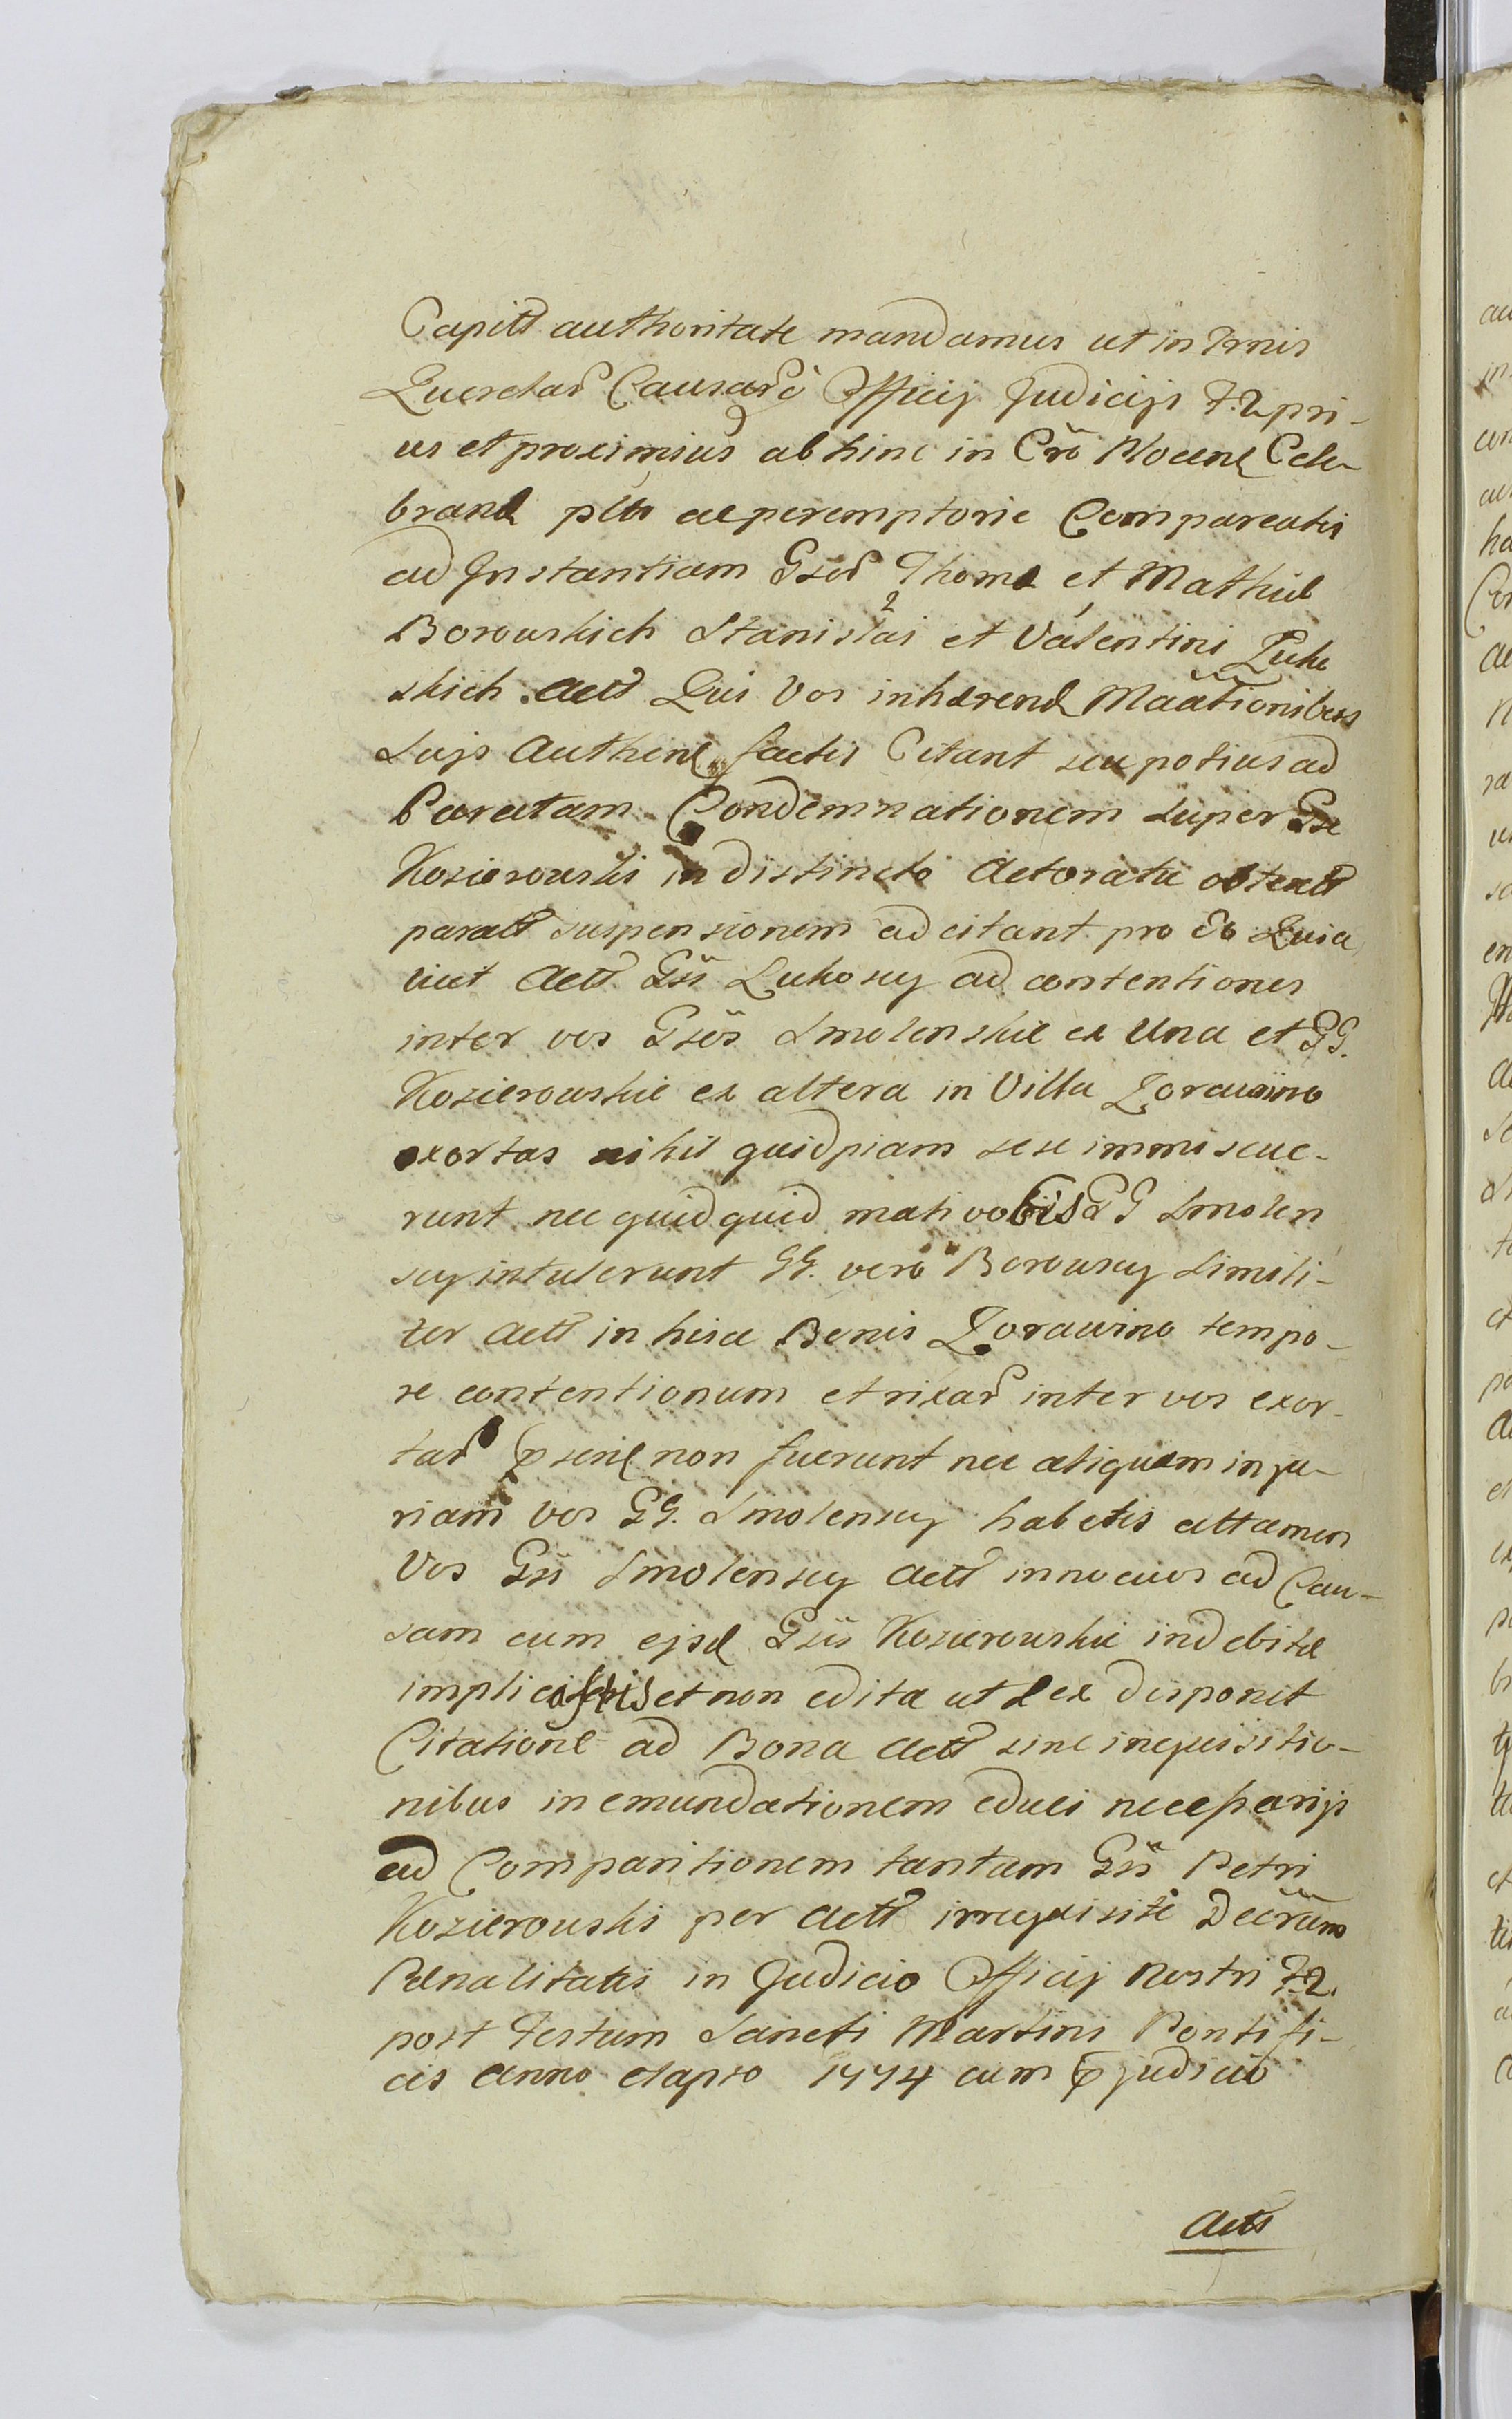 Capitl authoritate mandamus ut in Trnis
Querelar Causarq Officij Judicijs F. 2 pri-
us et proximius abhinc in Cro Plocens Cele-
brand plr ac peremptorie Compareatis
ad Instantiam Gsor Thoma et Mathiæ
Borowskich Stanislai et Valentini Luko
skich Act Qui Vos inhærend Maationibus
Suis Authenc factis Citant seu potius ad
Paratam Condemnationem super Gse
Kozierowski indistincte Actoratu obtent
parat suspensionem adcitant pro eo Quia
licet Act Gsi Lukoscy ad contentiones
inter vos Gsos Smolenskie ex Una et GG.
Kozierowskie ex altera in Villa Zorawino
exortas nihil quidpiam sese immiscue-
runt nec quidquid mali vobis GG Smolen
scy intulerunt GG. vero Borowscy Simili-
ter Act in hisce Bonis Zorawino tempo-
re contentionum et rixar inter vos exor-
tar psens non fuerunt nec aliquam inju-
riam vos GG. Smolenscy habetis attamen
Vos Gsi Smolenscy Act innocuos ad Cau-
sam cum ejsd Gsis Kozierowskie indebite
implicuistis et non edita ut Lex disponit
Citatione ad Bona Act sine inquisitio-
nibus in emundationem educi necessarijs
ad Comparitionem tantum Gsi Petri
Kozierowski per Act irrequisiti Decrum
Pænalitatis in Judicio Officij Nostri F. 2.
post Festum Sancti Martini Pontifi-
cis Anno elapso 1774 cum pjudicio
Acts